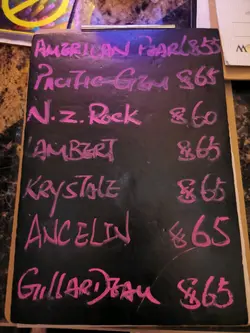 AMERICAN PEARL $55
PACIFIC GEM $65
N.Z. ROCK $60
AMBERT $65
KRYSTALE $65
ANCELIN $65
GILLARDEAU $65